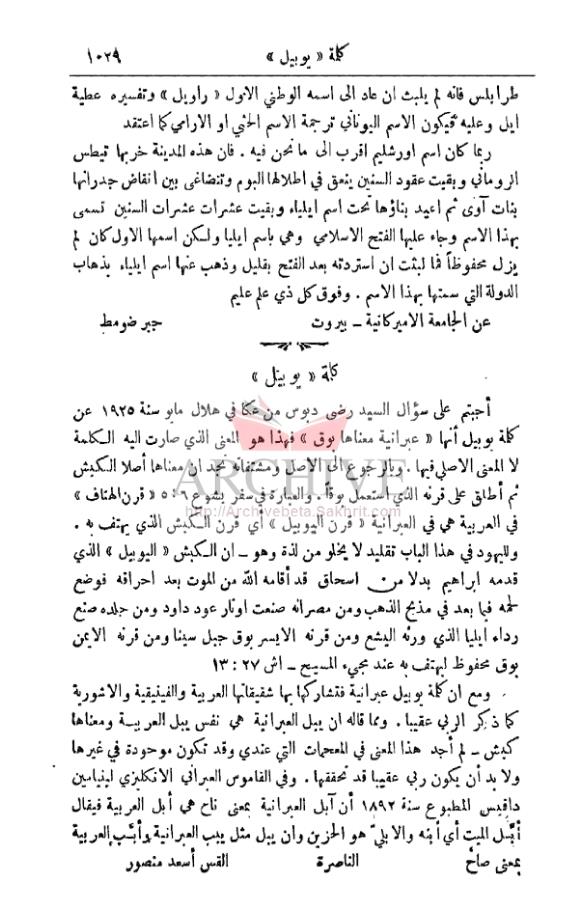 كلمة « يوبيل » ١٠٢٩
طرابلس فانه لم يلبث ان عاد الى اسمه الوطني الاول « راويل » وتفسيره عطية
ايل وعليه فيكون الاسم اليوناني ترجمة الاسم الحثي او الارامي كما اعتقد
ربما كان اسم اورشليم اقرب الى ما نحن فيه . فان هذه المدينة خربها تيطس
الروماني وبقيت عقود السنين ينعق في اطلالها البوم وتتضاغى بين انقاض جدرانها
بنات آوى ثم اعيد بناؤها تحت اسم ايلياء وبقيت عشرات عشرات السنين تسمى
بهذا الاسم وجاء عليها الفتح الاسلامي وهي باسم ايليا ولكن اسمها الاول كان لم
يزل محفوظاً فما لبثت ان استردته بعد الفتح بقليل وذهب عنها اسم ايلياء بذهاب
الدولة التي سمتها بهذا الاسم . وفوق كل ذي علم عليم
عن الجامعة الاميركانية ــ بيروت جبر ضومط
كلمة « يوبيل »
أجبتم على سؤال السيد رضى دبوس من عكا في هلال مايو سنة ١٩٢٥ عن
كلمة يوبيل أنها « عبرانية معناها بوق » فهذا هو المعنى الذي صارت اليه الكلمة
لا المعنى الاصلي فيها . وبالرجوع الى الاصل ومشتقاته نجد ان معناها أصلا الكبش
ثم أطلق على قرنه الذي استعمل بوقا . والعبارة في سفر يشوع ٦ : ٥ « قرن الهتاف »
في العربية هي في العبرانية « قرن اليوبيل » أي قرن الكبش الذي يهتف به .
ولليهود في هذا الباب تقليد لا يخلو من لذة وهو ــ ان الكبش « اليوبيل » الذي
قدمه ابراهيم بدلا من اسحاق قد أقامه الله من الموت بعد احراقه فوضع
لحمه فيما بعد في مذبح الذهب ومن مصرانه صنعت اوتار عود داود ومن جلده صنع
رداء ايليا الذي ورثه اليشع ومن قرنه الايسر بوق جبل سينا ومن قرنه الايمن
بوق محفوظ ليهتف به عند مجيء المسيح ــ اش ٢٧ : ١٣
ومع ان كلمة يوبيل عبرانية فتشاركها بها شقيقاتها العربية والفينيقية والاشورية
كما ذكر الربي عقيبا . ومما قاله ان يبل العبرانية هي نفس يبل العربية ومعناها
كبش ــ لم أجد هذا المعنى في المعجمات التي عندي وقد تكون موجودة في غيرها
ولا بد أن يكون ربي عقيبا قد تحققها . وفي القاموس العبراني الانكليزي لبنيامين
دافيس المطبوع سنة ١٨٩٢ أن آبل العبرانية بمعنى ناح هي أبل العربية فيقال
أبّل الميت أي أبنه والابليّ هو الحزين وان يبل مثل يبب العبرانية وأبّب العربية
بمعنى صاح الناصرة القس أسعد منصور
ARCHIVE
http://Archivebeta.Sakhrit.com